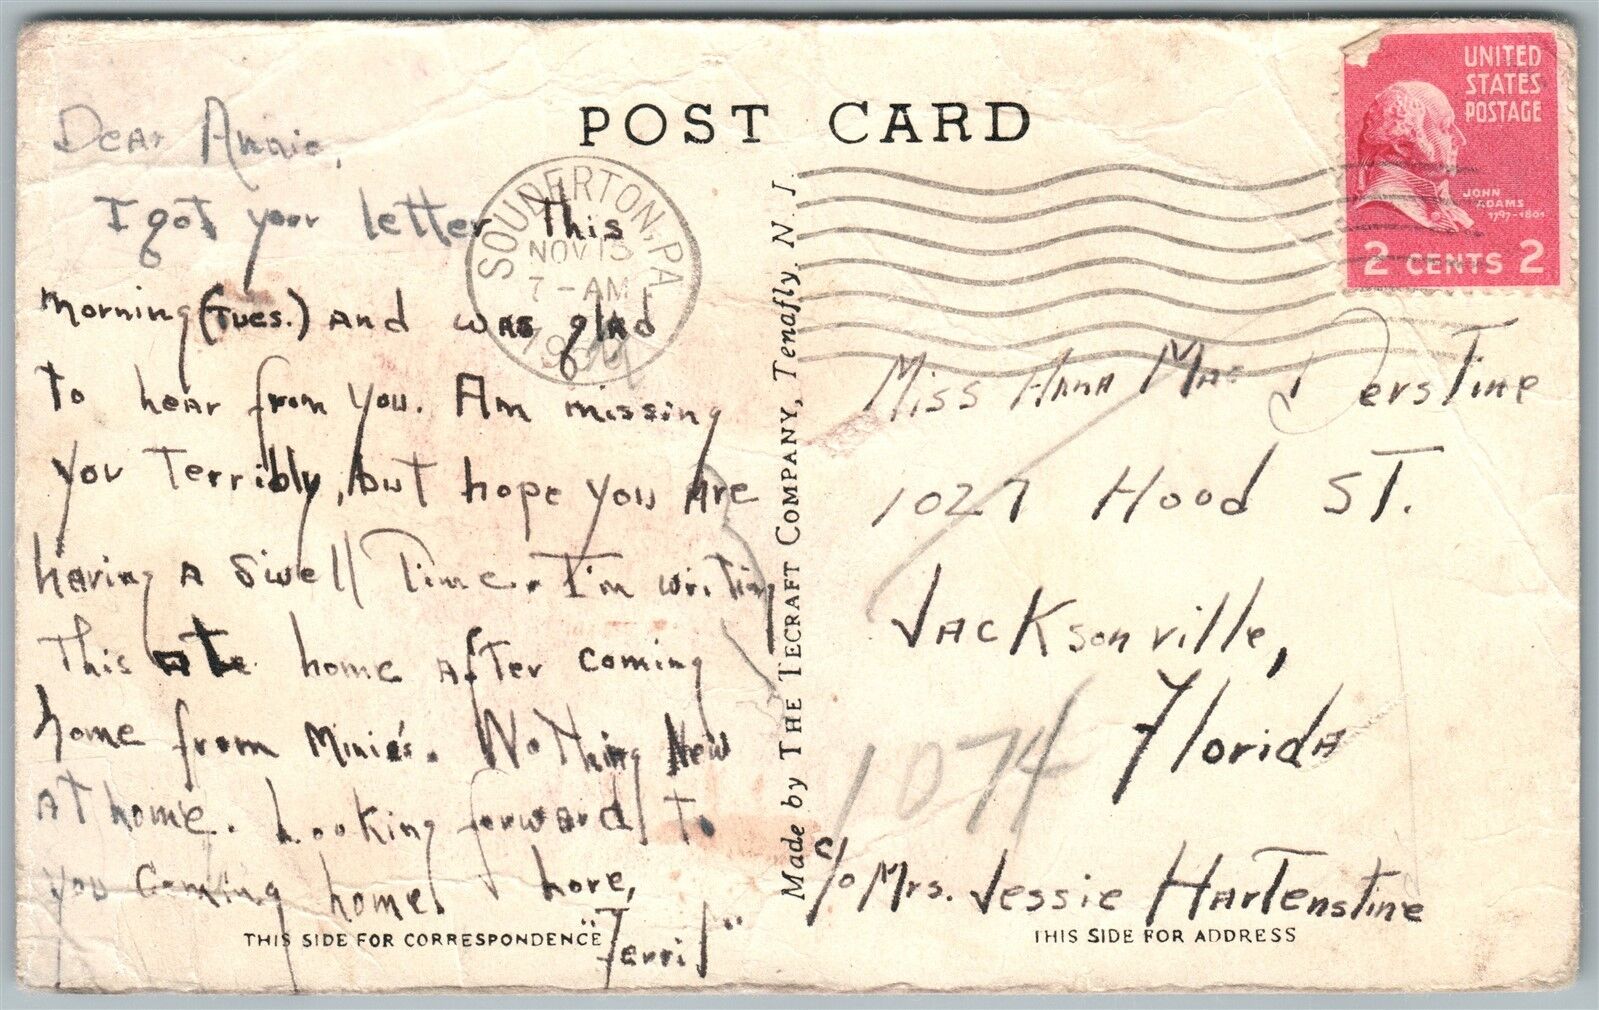 POST CARD
UNITED
STATES
POSTAGE
JOHN
ADAMS
1797-1801
2 CENTS 2
SOUDERTON, PA
NOV 13
7-AM
Dear Annie,
I got your letter this
morning (Tues.) and was glad
to hear from you. Am missing
you Terribly, but hope you are
having a swell Time. I'm writing
This at home after coming
home from Minie's. Nothing New
at home. Looking forward To
you coming home. Love,
"Terril"
THIS SIDE FOR CORRESPONDENCE
Made by THE TECRAFT COMPANY, Tenafly. N. J.
Miss Anna Mae Derstine
1027 Hood ST.
Jacksonville,
Florida
1074
c/o Mrs. Jessie Hartenstine
THIS SIDE FOR ADDRESS